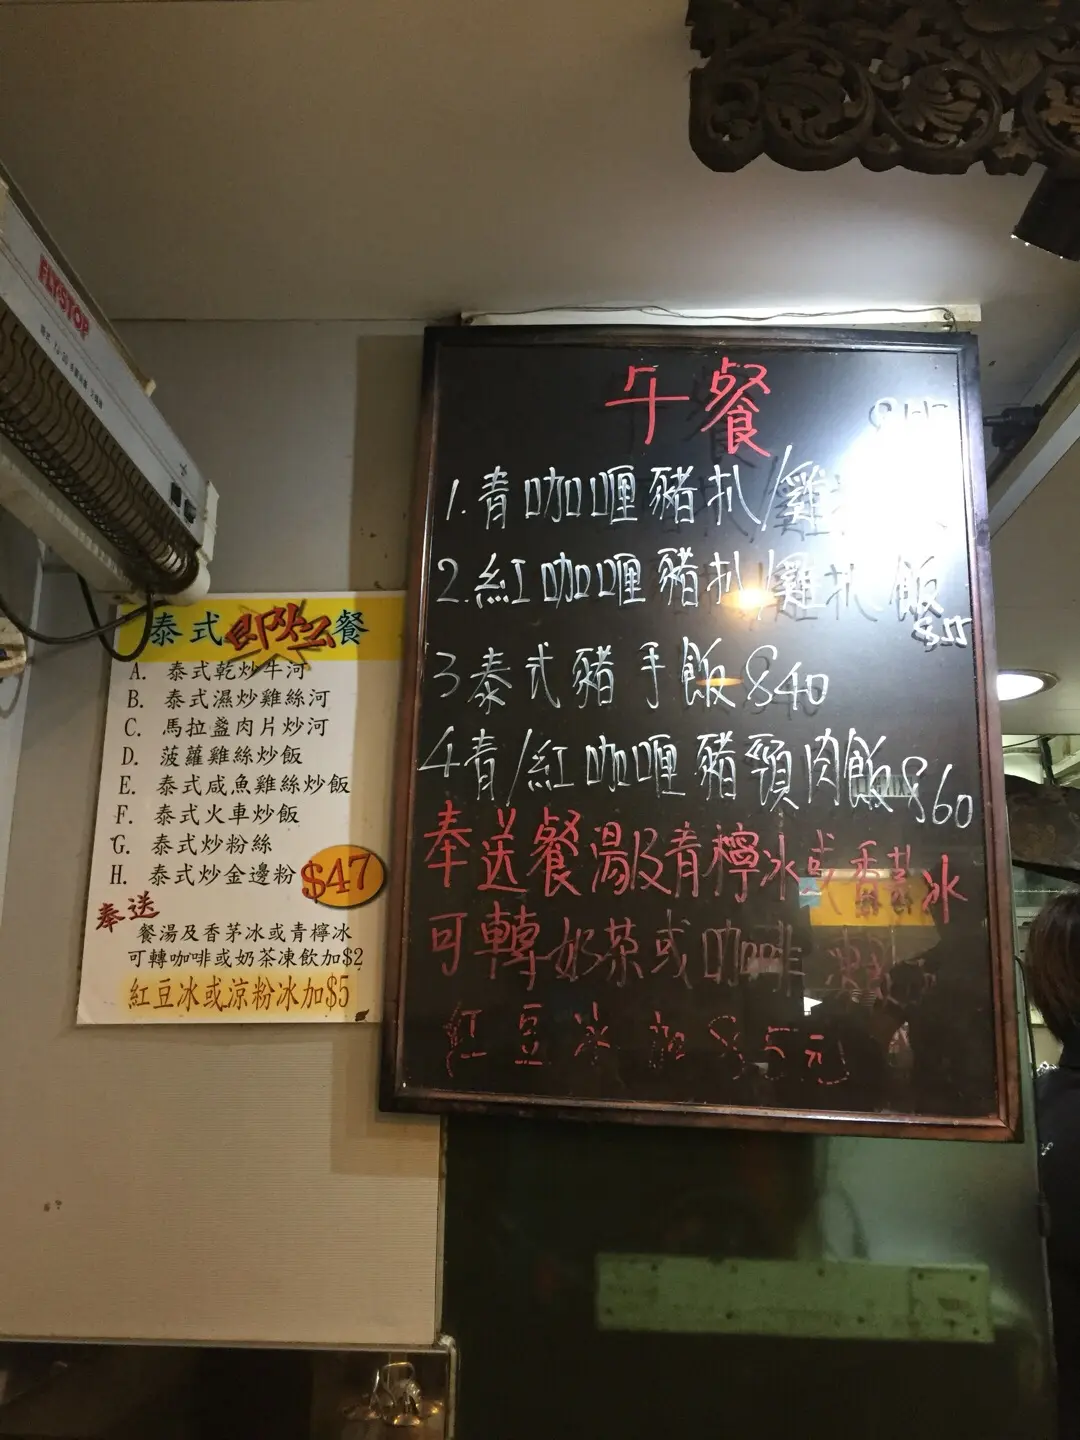 FLYSTOP
泰式即炒餐
A. 泰式乾炒牛河
B. 泰式濕炒雞絲河
C. 馬拉盞肉片炒河
D. 菠蘿雞絲炒飯
E. 泰式咸魚雞絲炒飯
F. 泰式火車炒飯
G. 泰式炒粉絲
H. 泰式炒金邊粉
$47
奉送
餐湯及香茅冰或青檸冰
可轉咖啡或奶茶凍飲加$2
紅豆冰或涼粉冰加$5
午餐
1.青咖喱豬扒/雞
2.紅咖喱豬扒/雞扒飯
$55
3泰式豬手飯$40
4青/紅咖喱豬頸肉飯$60
奉送餐湯及青檸冰或香茅冰
可轉奶茶或咖啡
紅豆冰加$5元